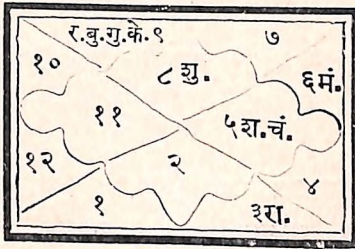 र.बु.गु.के.९ ७
१० ८ शु. ६मं.
११ ५श.चं.
१२ २ ४
१ ३रा.